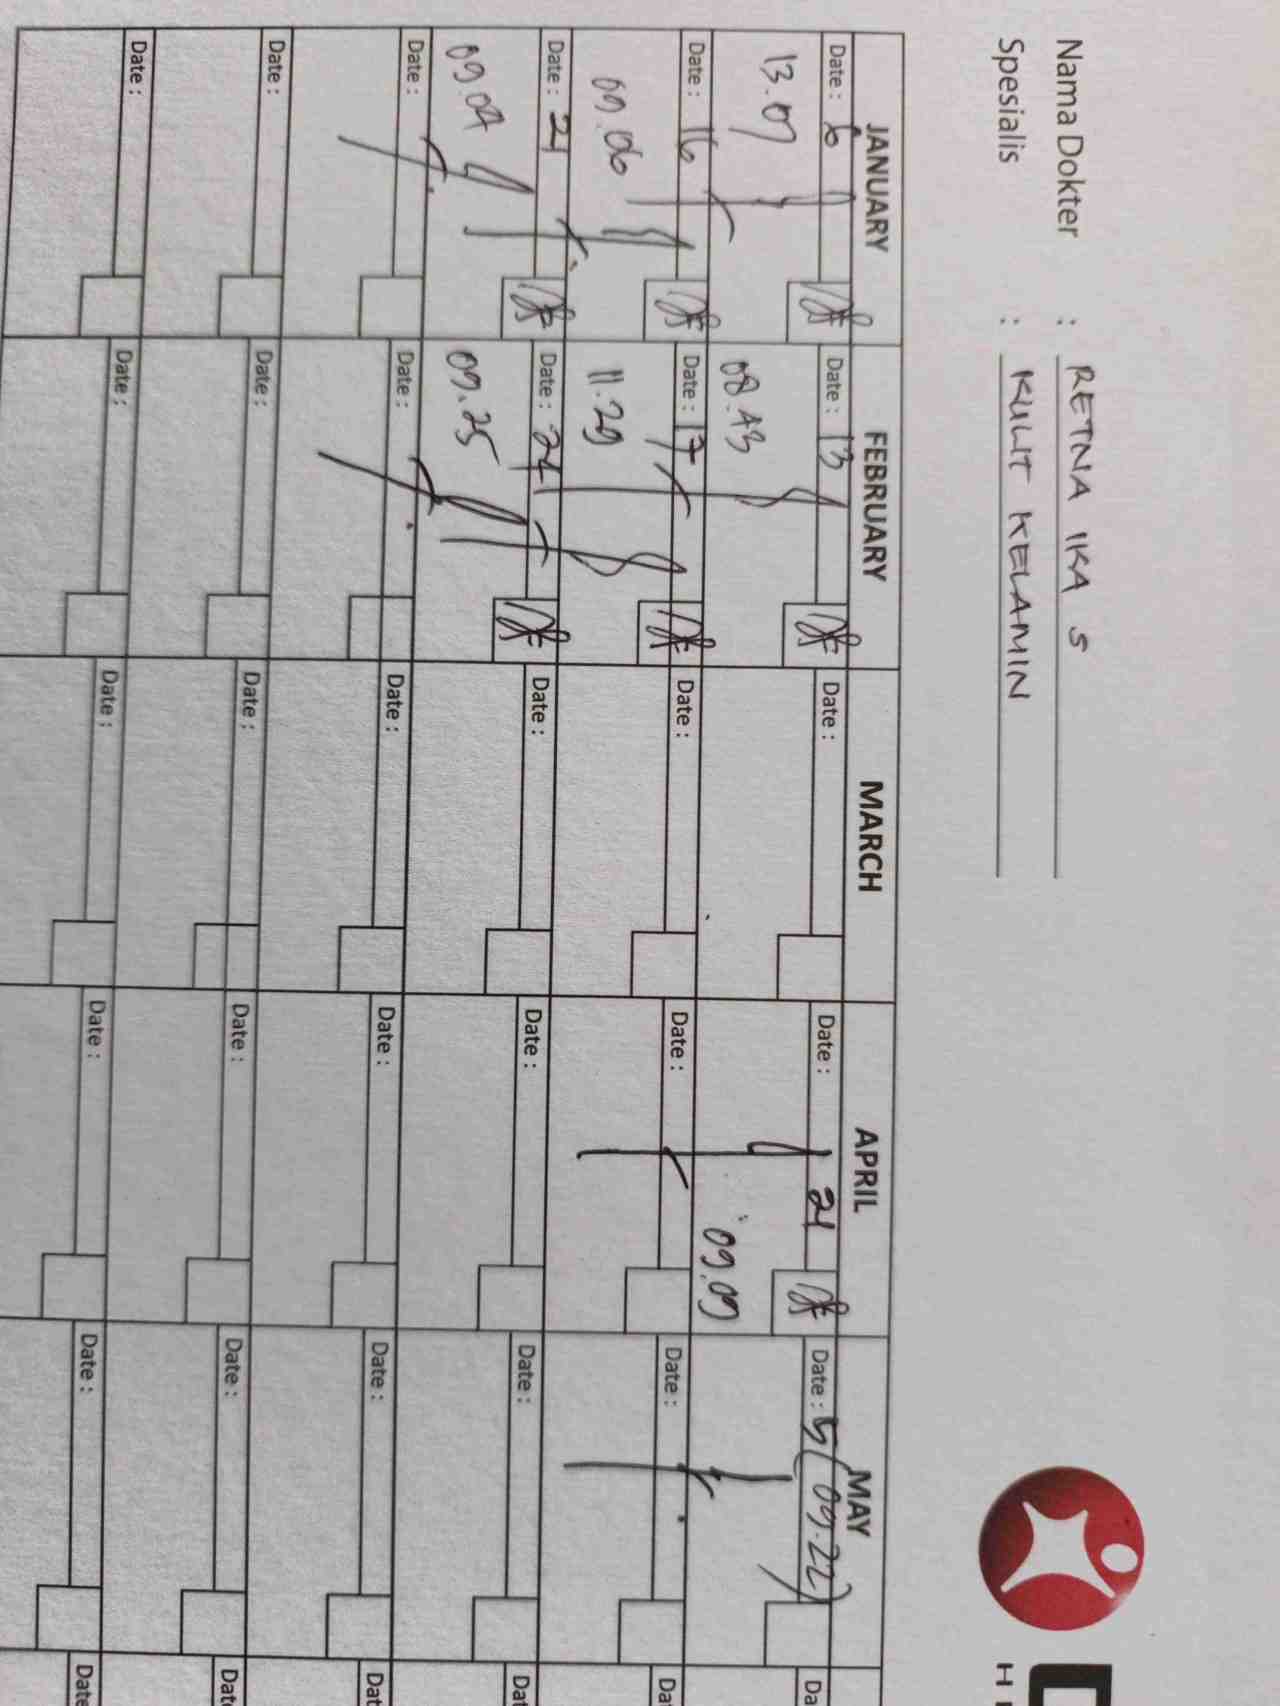 Nama Dokter : RETNA IKA S
Spesialis : KULIT KELAMIN
JANUARY FEBRUARY MARCH APRIL MAY
Date : 6 Date : 13 Date : Date : 21 Date : 5 (09.22)
13.07 08.43 09.09
Date : 16 Date : 17 Date : Date : Date :
09.06 11.29
Date : 21 Date : 24 Date : Date : Date :
09.04 09.25
Date : Date : Date : Date : Date :
Date : Date : Date : Date : Date :
Date : Date : Date : Date : Date :